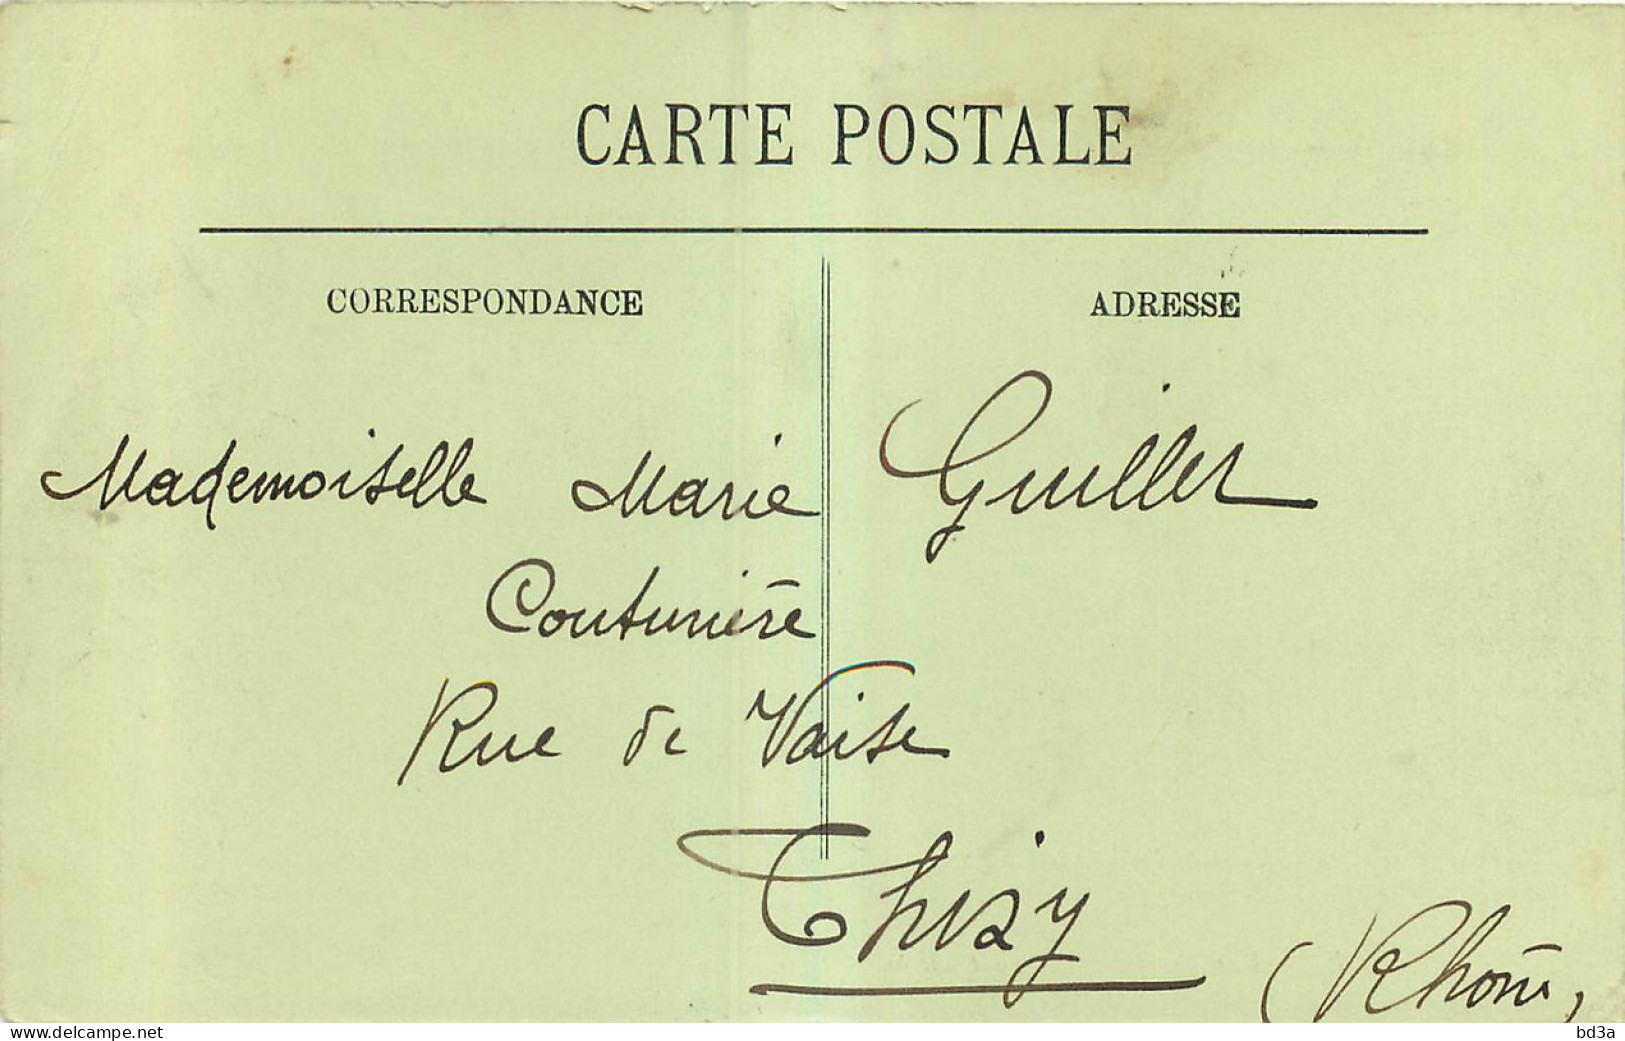 CARTE POSTALE
CORRESPONDANCE ADRESSE
Mademoiselle Marie Guillet
Couturière
Rue de Vaise
Thizy
(Rhône)
www.delcampe.net bd3a